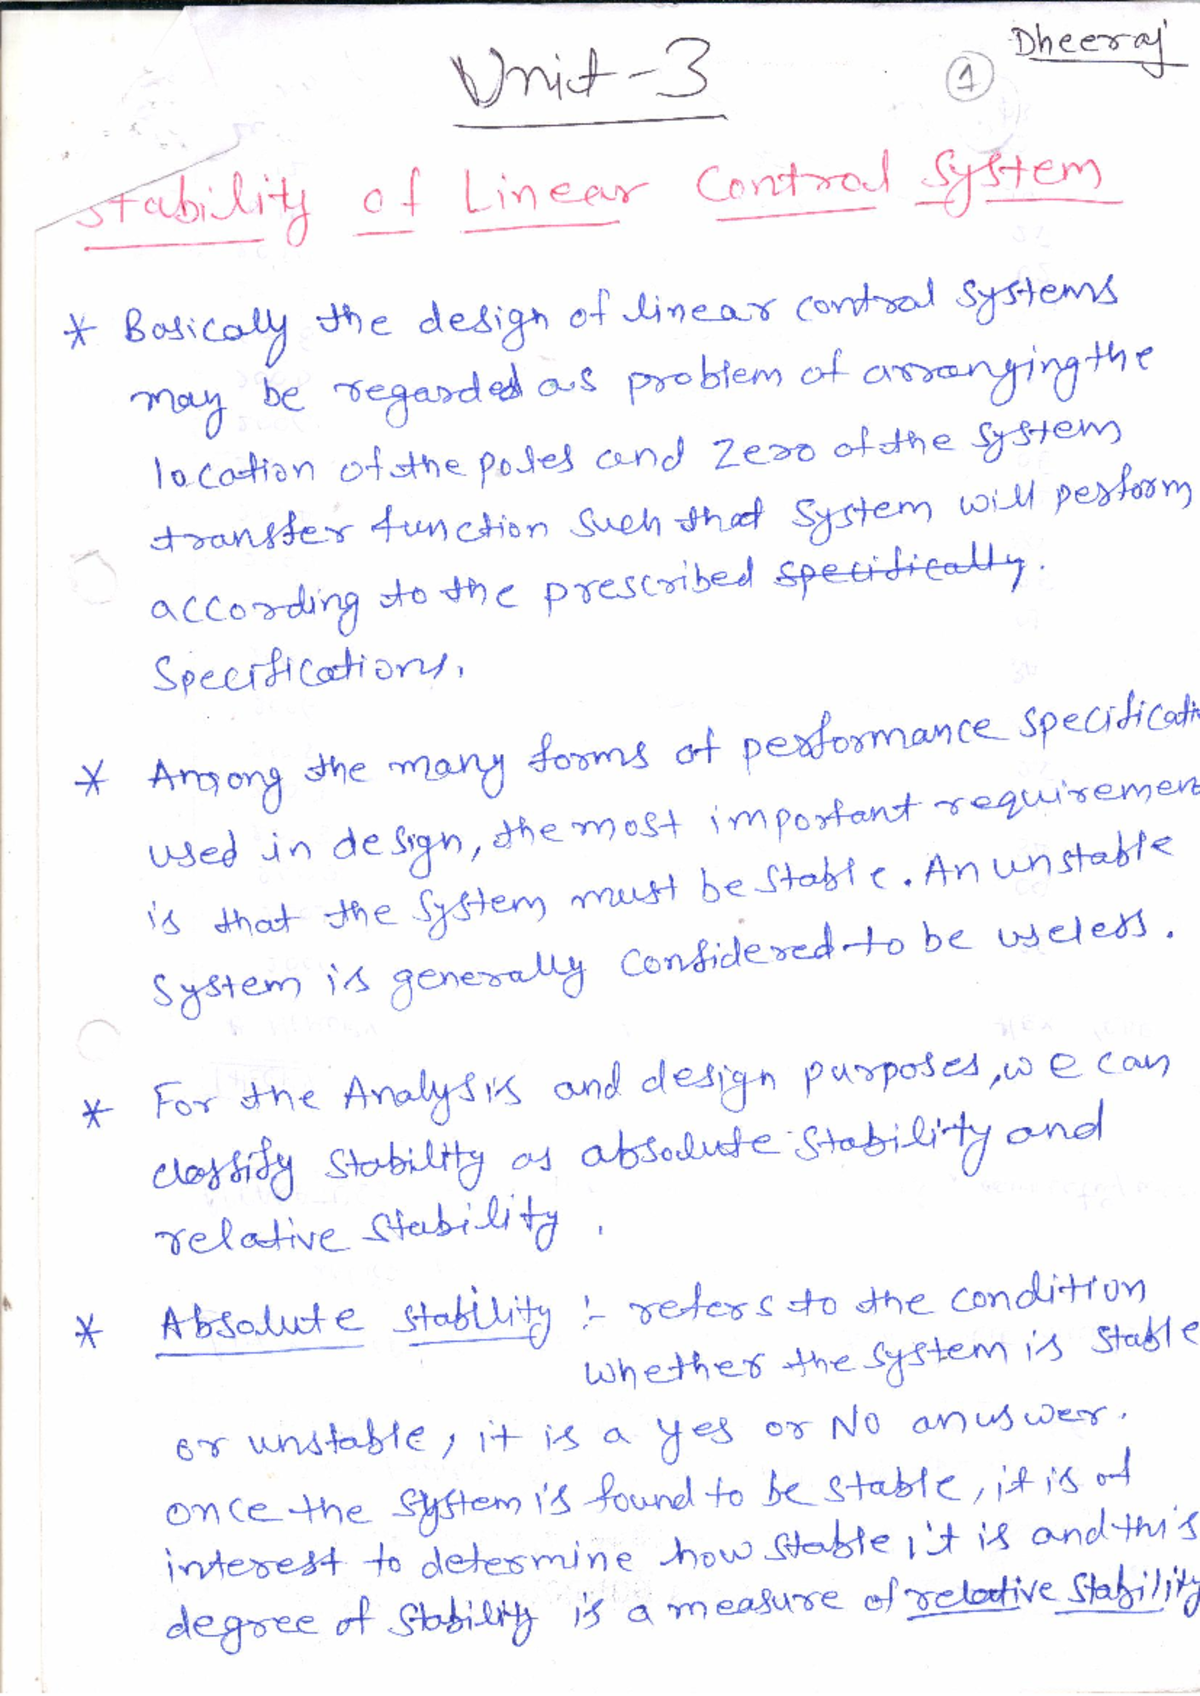 Dheeraj
1
Unit-3
Stability of Linear Control System
* Basicaly the design of linear control systems
may be regarded as problem of arranging the
location of the poles and zero of the system
transfer function such that system will perform
according to the prescribed specifically.
Specifications.
* Among the many forms of performance specificati
used in design, the most important requiremen
is that the system must be stable. An unstable
system is generally considered to be useless.
* For the Analysis and design purposes, we can
classify stability as absolute stability and
relative stability.
* Absolute stability :- refers to the condition
whether the system is stable
or unstable, it is a yes or No anuswer.
once the system is found to be stable, it is of
interest to determine how stable it is and this
degree of stability is a measure of relative stability